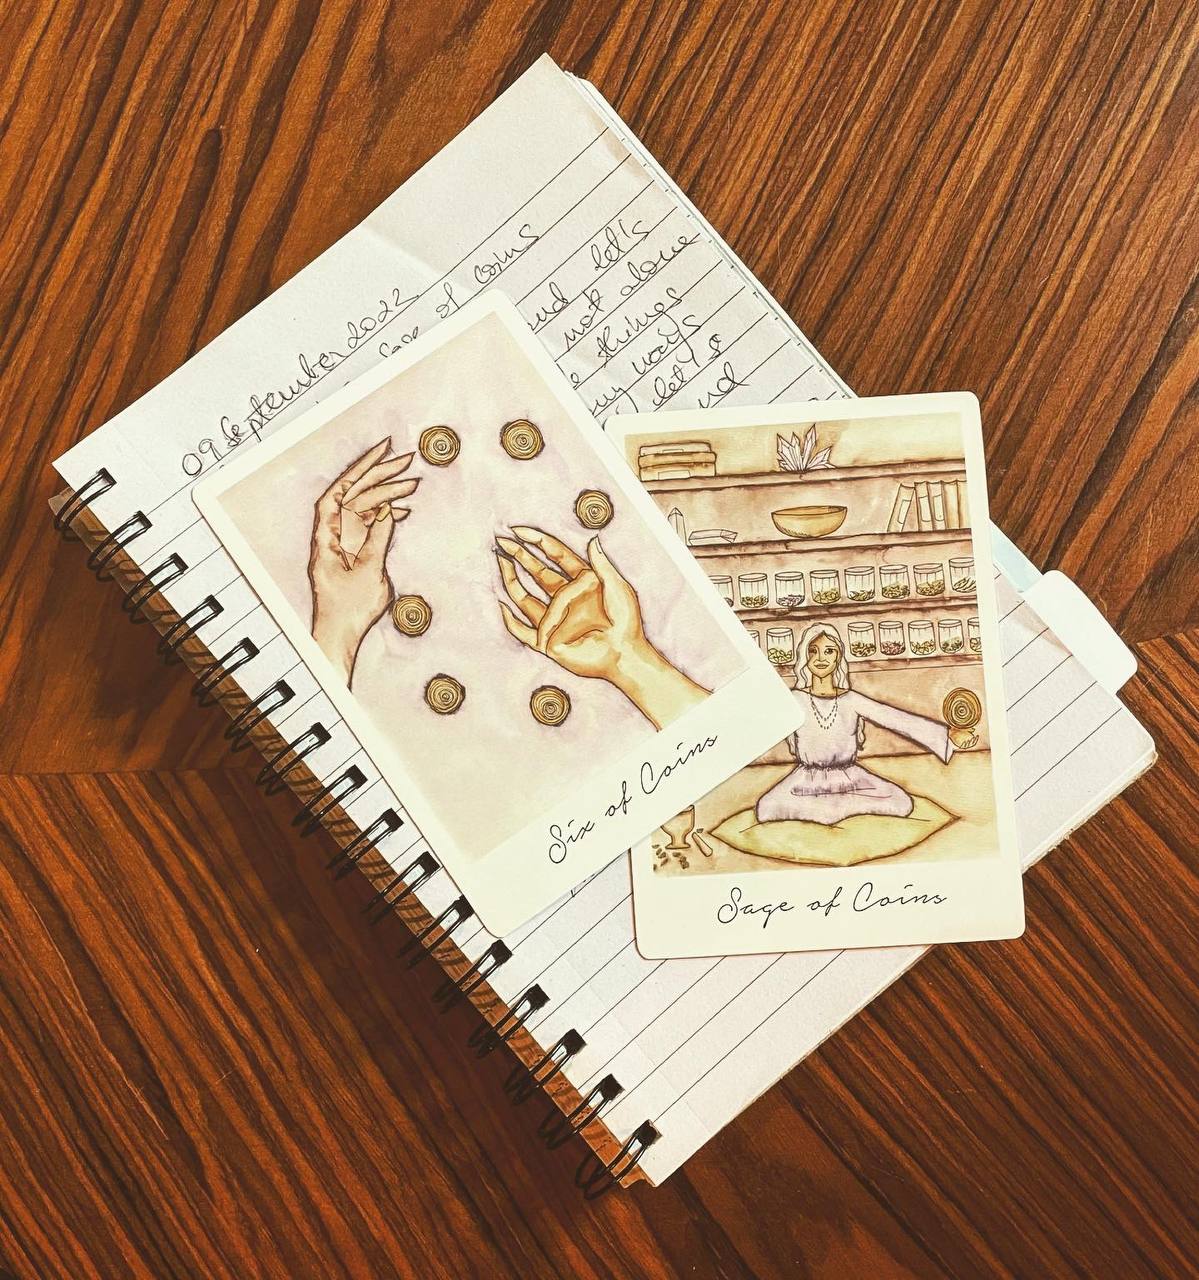 09 September 2022
of coins
and let's
not alone
things
ways
let's
Six of Coins
Sage of Coins